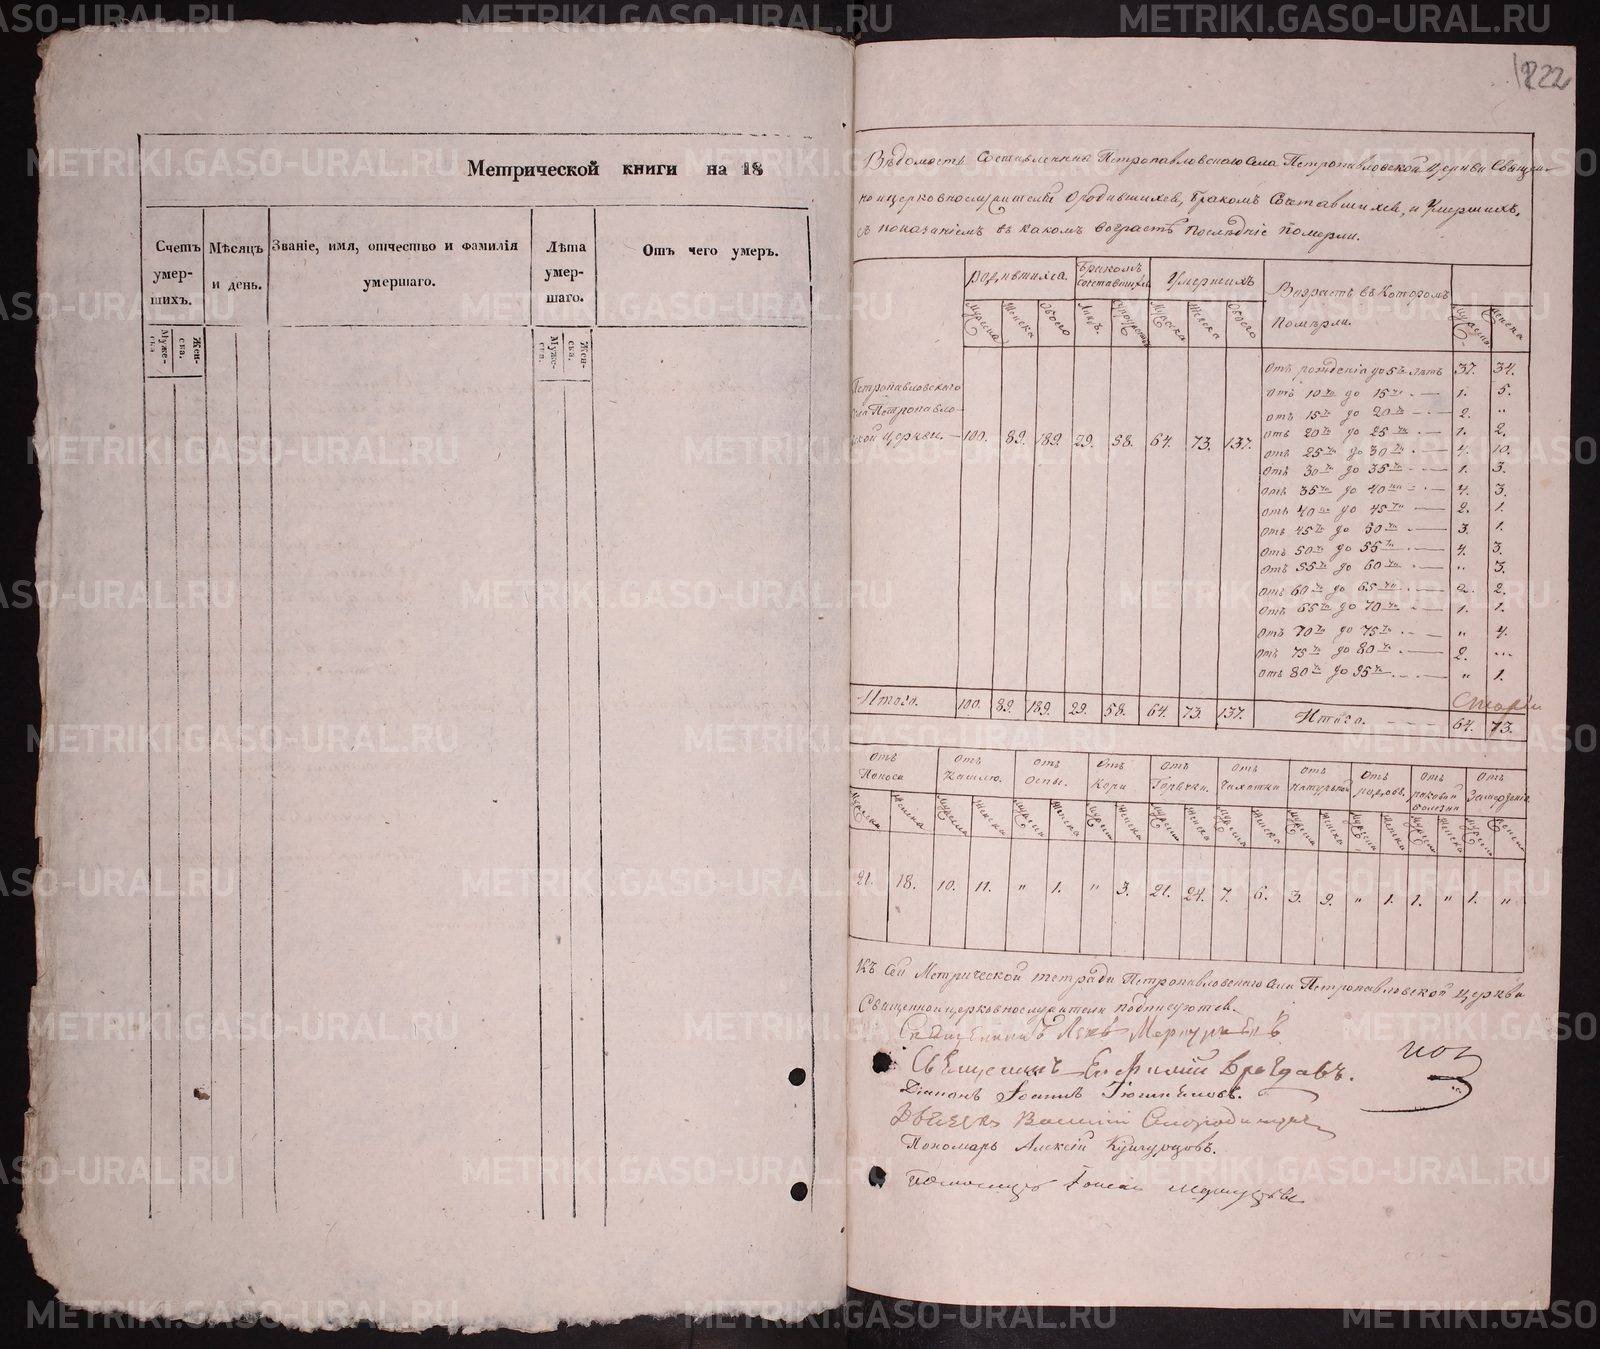 METRIKI.GASO-URAL.RU
Метрической книги на 18
Счетъ умер- шихъ.
Муже- ска.
Жен- ска.
Мѣсяцъ и день.
Званіе, имя, отчество и фамилія умершаго.
Лѣта умер- шаго.
Муже- ска.
Жен- ска.
Отъ чего умеръ.
122
Вѣдомость Составленна Петропавловскаго Села Петропавловской Церкви Священ-
ноицерковнослужителей О родившихся, Бракомъ Сочетавшихся, и Умершихъ,
съ показаніемъ въ какомъ возрастѣ Последніе померли.
Родившихся. Бракомъ сочетавшихся Умершихъ Возрастъ въ Которомъ
Померли.
Мужеска Женска Обоего Мужеска Женска Обоего Мужеска Женска
Петропавловскаго
Села Петропавло-
вской Церкви. — 100. 89. 189. 29. 58. 64. 73. 137.
Отъ рожденія до 5ти лѣтъ 37. 34.
Отъ 10ти до 15ти — 1. 5.
Отъ 15ти до 20ти — 2. "
Отъ 20ти до 25ти — 1. 2.
Отъ 25ти до 30ти — 4. 10.
Отъ 30ти до 35ти — 1. 3.
Отъ 35ти до 40ти — 4. 3.
Отъ 40ти до 45ти — 2. 1.
Отъ 45ти до 50ти — 3. 1.
Отъ 50ти до 55ти — 4. 3.
Отъ 55ти до 60ти — " 3.
Отъ 60ти до 65ти — 2. 2.
Отъ 65ти до 70ти — 1. 1.
Отъ 70ти до 75ти — " 4.
Отъ 75ти до 80ти — 2. "
Отъ 80ти до 95ти — " 1.
Итого. 100. 89. 189. 29. 58. 64. 73. 137. Итого. 64. 73.
Отъ Поноса Отъ Кашлю. Отъ Оспы. Отъ Кори Отъ Горячки. Отъ Чахотки Отъ натуральной Отъ родовъ. Отъ раковой болезни Отъ
Мужеска Женска Мужеска Женска Мужеска Женска Мужеска Женска Мужеска Женска Мужеска Женска Мужеска Женска Мужеска Женска Мужеска Женска Мужеска Женска
21. 18. 10. 11. " 1. " 3. 21. 24. 7. 6. 3. 9. " 1. 1. " 1. "
Къ Сей Метрической тетради Петропавловскаго Села Петропавловской Церкви
Священноицерковнослужители подписуются.
Священникъ Левъ
Священникъ
Діаконъ Іоаннъ
Василій
Пономарь Алексій Кунгурцовъ.